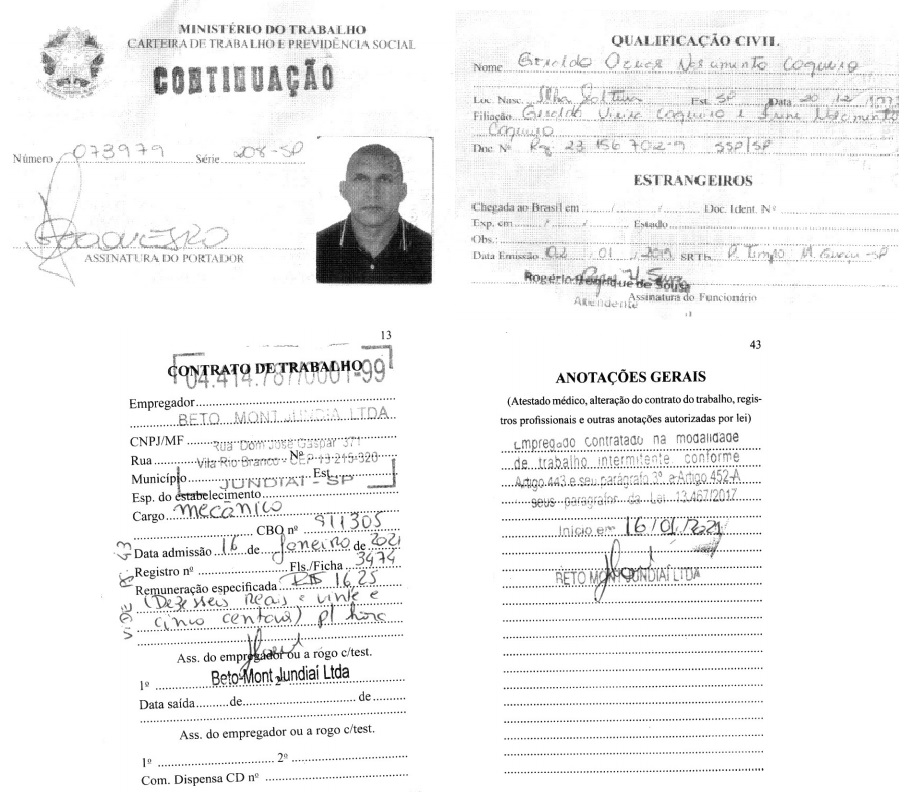 MINISTÉRIO DO TRABALHO
CARTEIRA DE TRABALHO E PREVIDÊNCIA SOCIAL
CONTINUAÇÃO
Número 073979 Série 208-SP
COQUEIRO
ASSINATURA DO PORTADOR
QUALIFICAÇÃO CIVIL
Nome Geraldo Nascimento Coqueiro
Loc. Nasc. Ilha Solteira Est. SP Data 20 12
Filiação Geraldo Vieira Coqueiro e Nascimento
Coqueiro
Doc. Nº Rg. 23 156 702-9 SSP/SP
ESTRANGEIROS
Chegada ao Brasil em / / Doc. Ident. Nº
Exp. em / / Estado
Obs.:
Data Emissão 02 01 2019 SRTb P. Tempo M. Guaçu-SP
Rogério Henrique de Souza
Assinatura do Funcionário
Atendente
13
CONTRATO DE TRABALHO
04.414.787/0001-99
Empregador
BETO MONT JUNDIAI LTDA
CNPJ/MF
Rua Dom José Gaspar 371
Rua Nº
Vila Rio Branco - CEP 13 215-320
Município Est.
JUNDIAÍ - SP
Esp. do estabelecimento
Cargo mecânico
CBO nº 911305
Data admissão 16 de Janeiro de 2021
Registro nº Fls./Ficha 3474
Remuneração especificada R$ 16,25
(Dezesseis Reais e vinte e
cinco centavos) p/ hora
VIDE PG 43
Ass. do empregador ou a rogo c/test.
1º 2º
Beto-Mont Jundiaí Ltda
Data saída de de
Ass. do empregador ou a rogo c/test.
1º 2º
Com. Dispensa CD nº
43
ANOTAÇÕES GERAIS
(Atestado médico, alteração do contrato do trabalho, regis-
tros profissionais e outras anotações autorizadas por lei)
Empregado contratado na modalidade
de trabalho intermitente, conforme
Artigo 443 e seu parágrafo 3º e Artigo 452-A
seus parágrafos da Lei 13.467/2017
Início em 16/01/2021
BETO MONT JUNDIAÍ LTDA